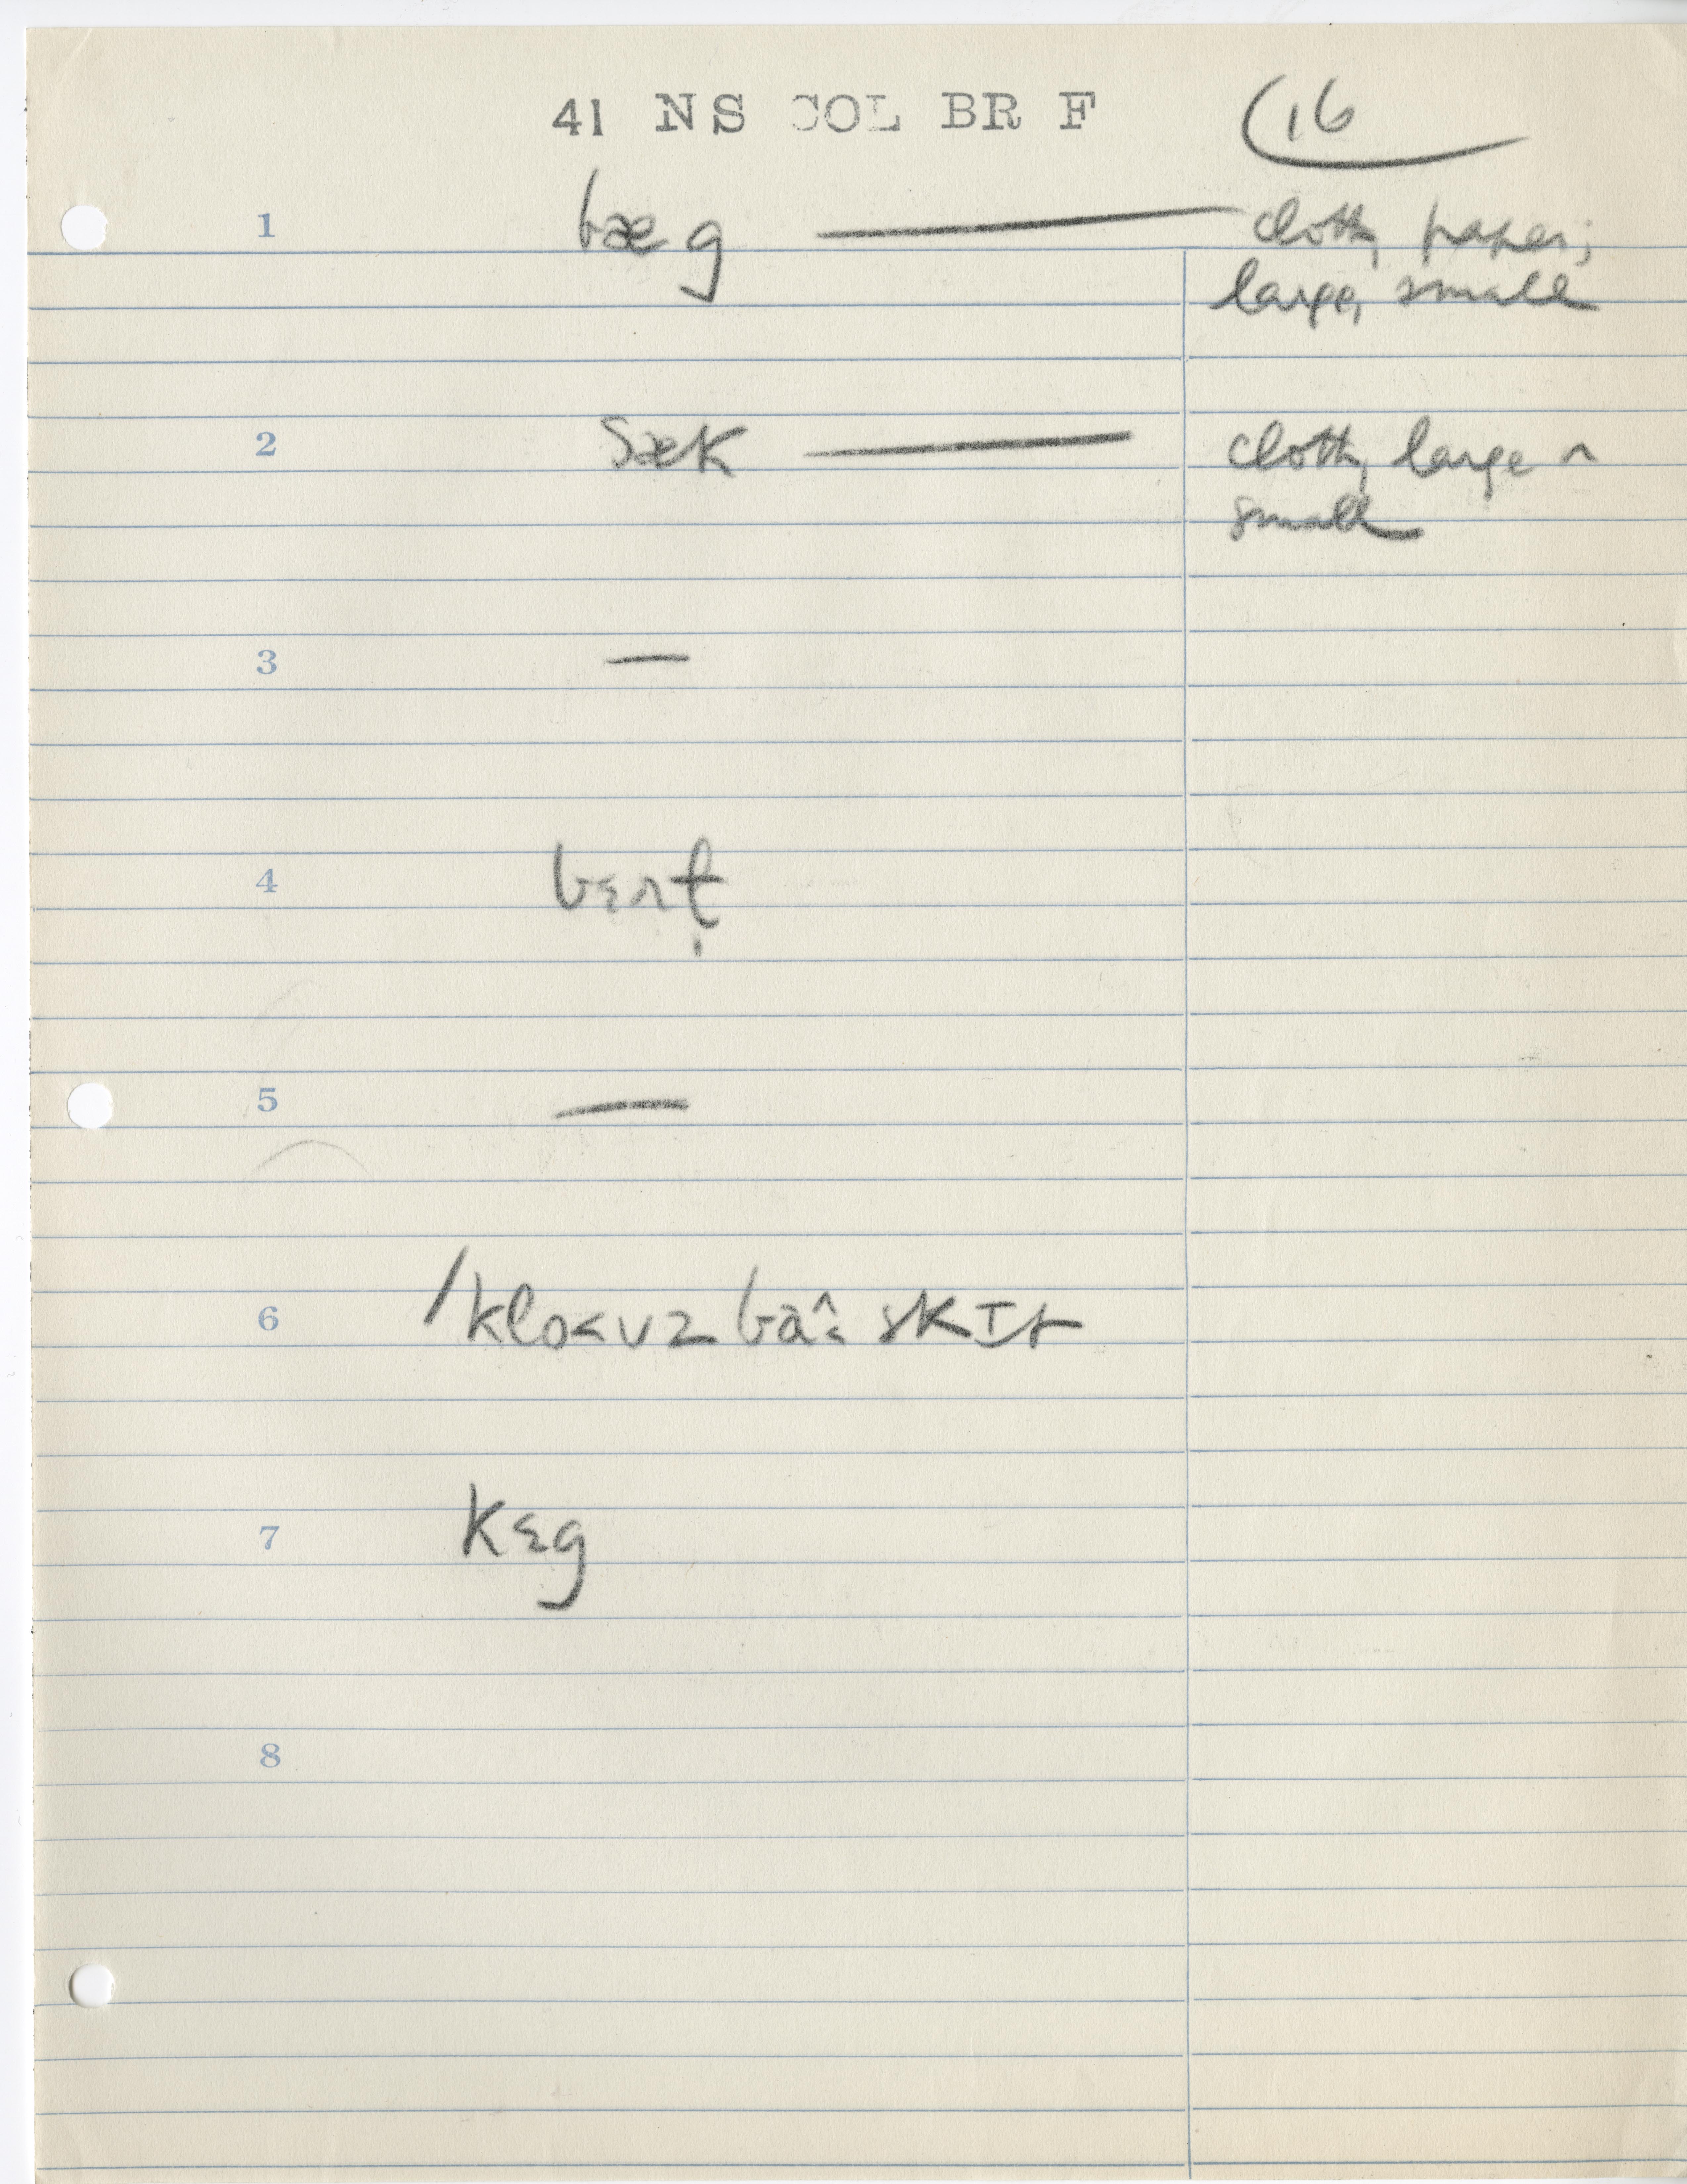 41 NS COL BR F (16
1 bæg — cloth, paper;
large, small
2 sæk — cloth, large ~
small
3 —
4
5 —
6
7 kɛg
8